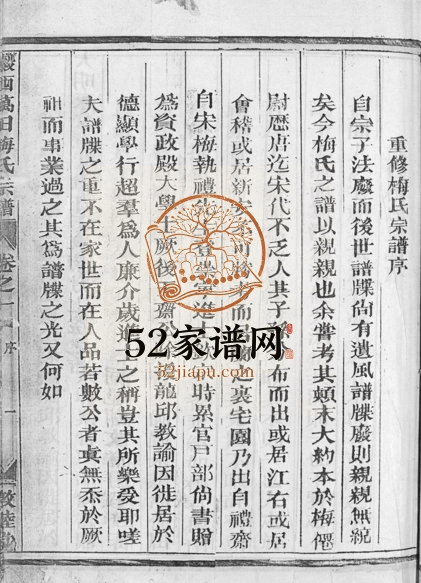 重修梅氏宗譜序
自宗子法廢而後世譜牒尚有遺風譜牒廢則親親無統
矣今梅氏之譜以親親也余嘗考其顛末大約本於梅僊
尉歷唐迄宋代不乏人其子 布而出或居江右或居
會稽或居新 之裏宅園乃出自禮齋
自宋梅執禮 進 時累官戶部尚書贈
為資政殿大學士厥後 龍邱教諭因徙居於
德顯學行超羣為人廉介歲進士之稱豈其所樂受耶嗟
夫譜牒之重不在家世而在人品若數公者真無忝於厥
祖而事業過之其為譜牒之光又何如
懷西萬田梅氏宗譜
卷之一
序
一
敦睦
52家谱网
52jiapu.com